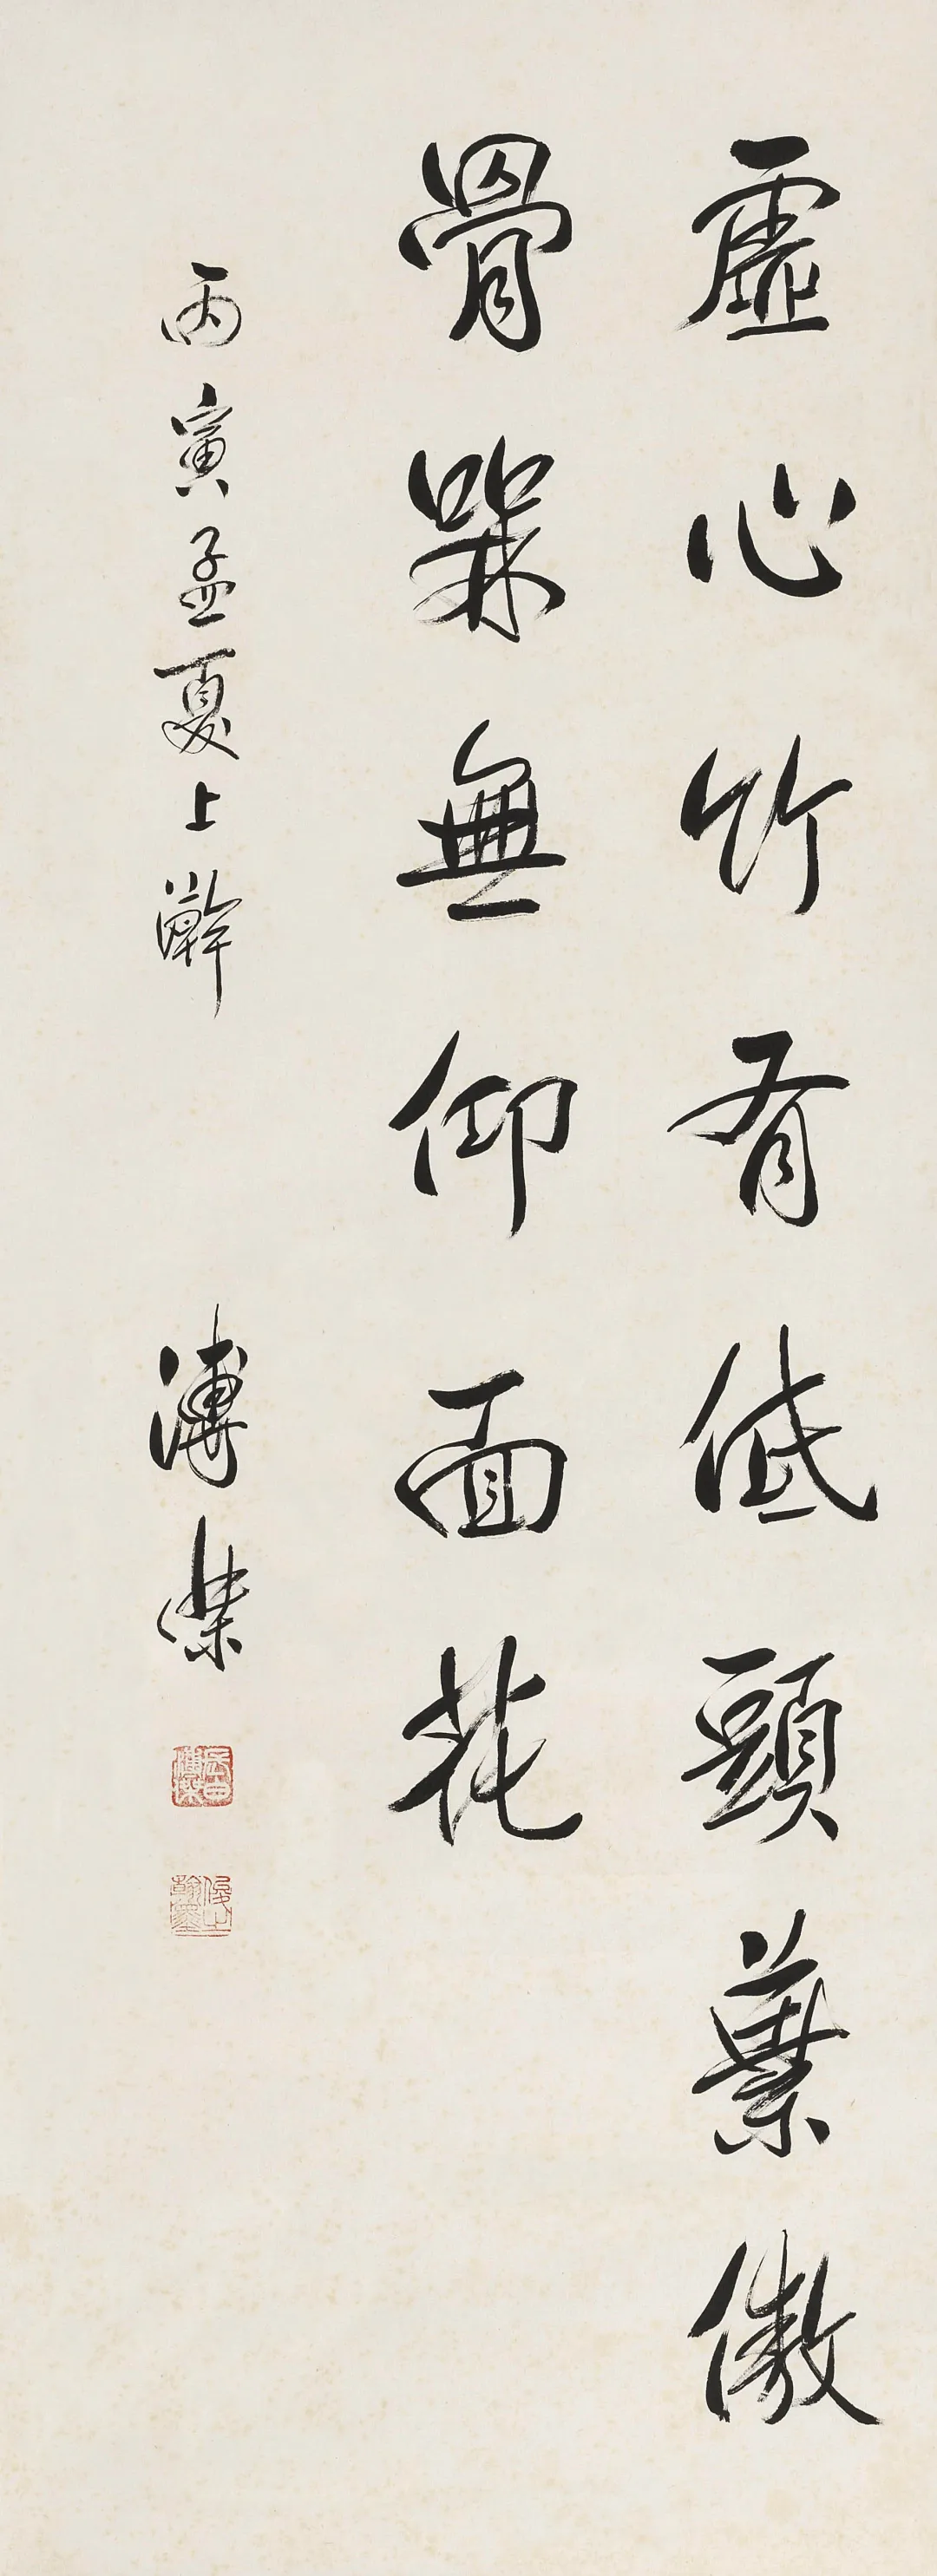 虛心竹有低頭葉傲
骨槑無仰面花
丙寅孟夏上澣
溥傑